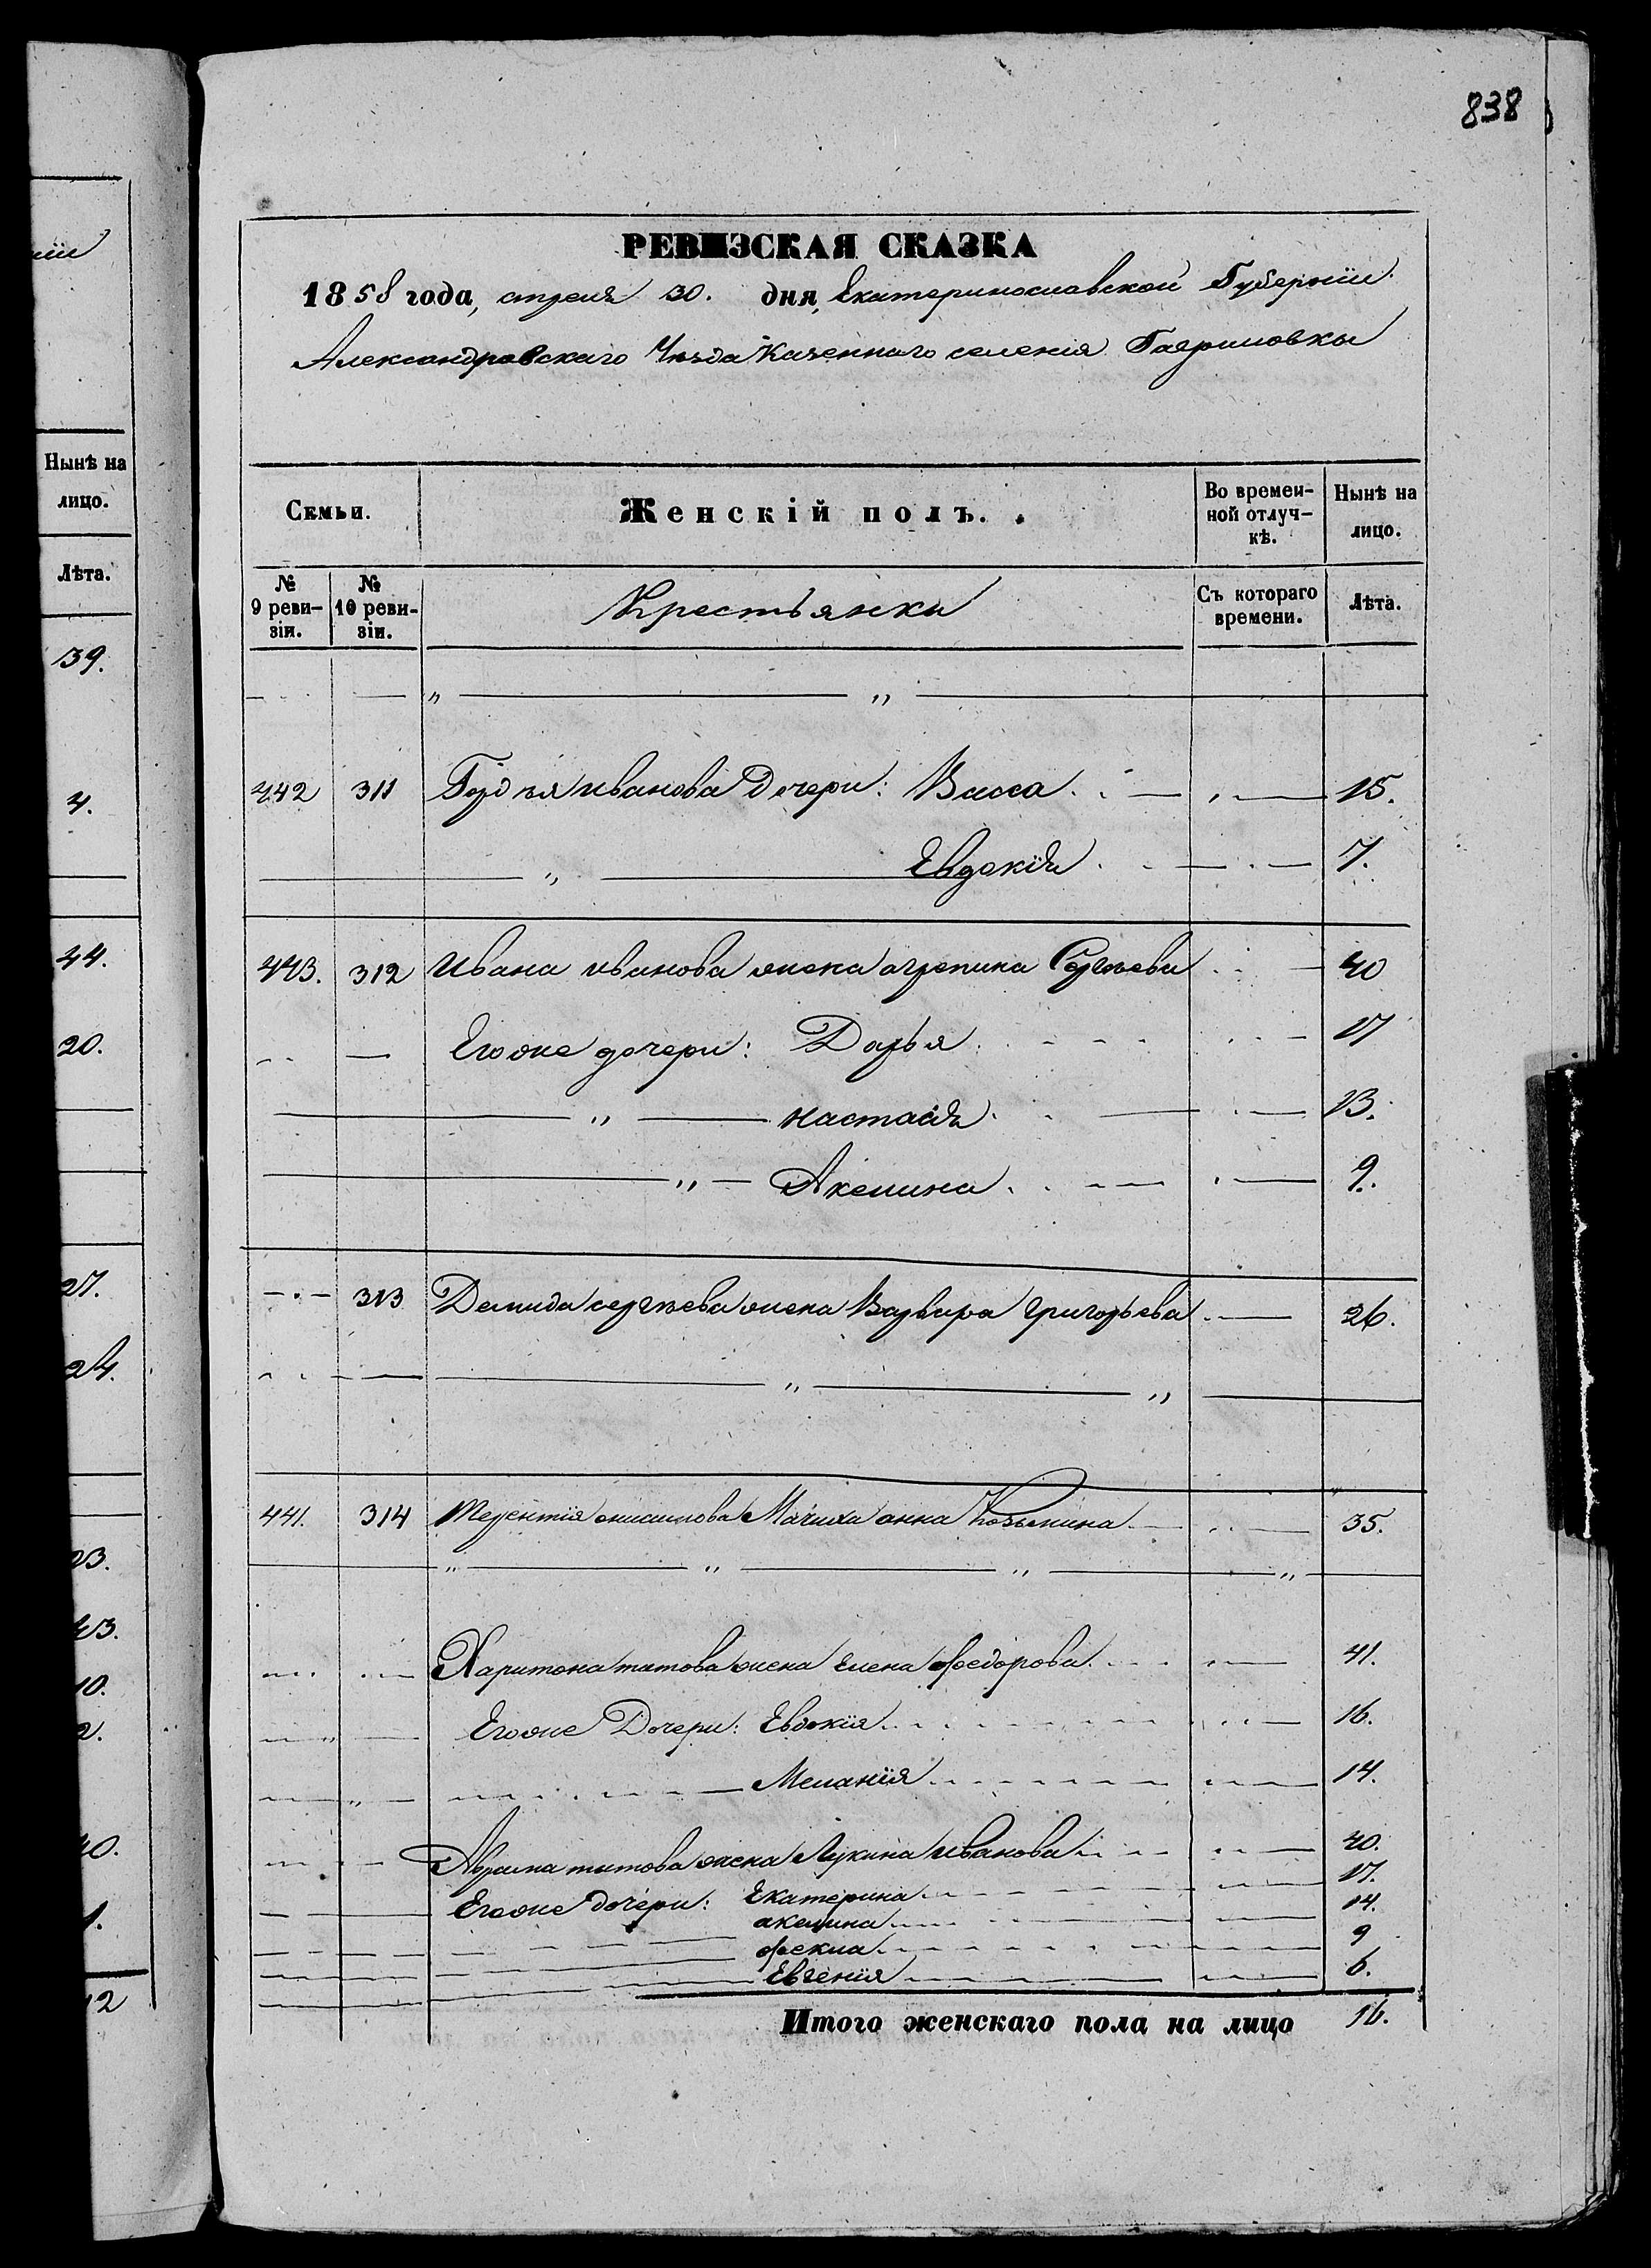 838
РЕВИЗСКАЯ СКАЗКА
1858 года, апреля 30. дня, Екатеринославской Губерніи
Александровскаго Уѣзда Казеннаго селенія Гавриловки
Семьи.
Женскій полъ.
Во времен-
ной отлуч-
кѣ.
Нынѣ на
лицо.
№
9 реви-
зіи.
№
10 реви-
зіи.
Крестьянки
Съ котораго
времени.
Лѣта.
442 311 Гордѣя иванова Дочери: Васса 15.
Евдокія 7.
443. 312 Ивана иванова жена агрепина Сергѣева 40
Егоже дочери: Дарья 17
настасія 13.
Акелина 9.
313 Демида сергѣева жена Варвара григорьева 26.
441. 314 Терентія Мачиха анна Козьмина 35.
Харитона титова жена Елена Федорова 41.
Егоже Дочери: Евдокія 16.
Меланія 14.
Абрама титова жена Лукина Иванова 40.
Егоже дочери: Екатерина 17.
акелина 14.
фекла 9
Евгенія 6.
Итого женскаго пола на лицо 16.
Нынѣ на
лицо.
Лѣта.
39.
4.
44.
20.
27.
24.